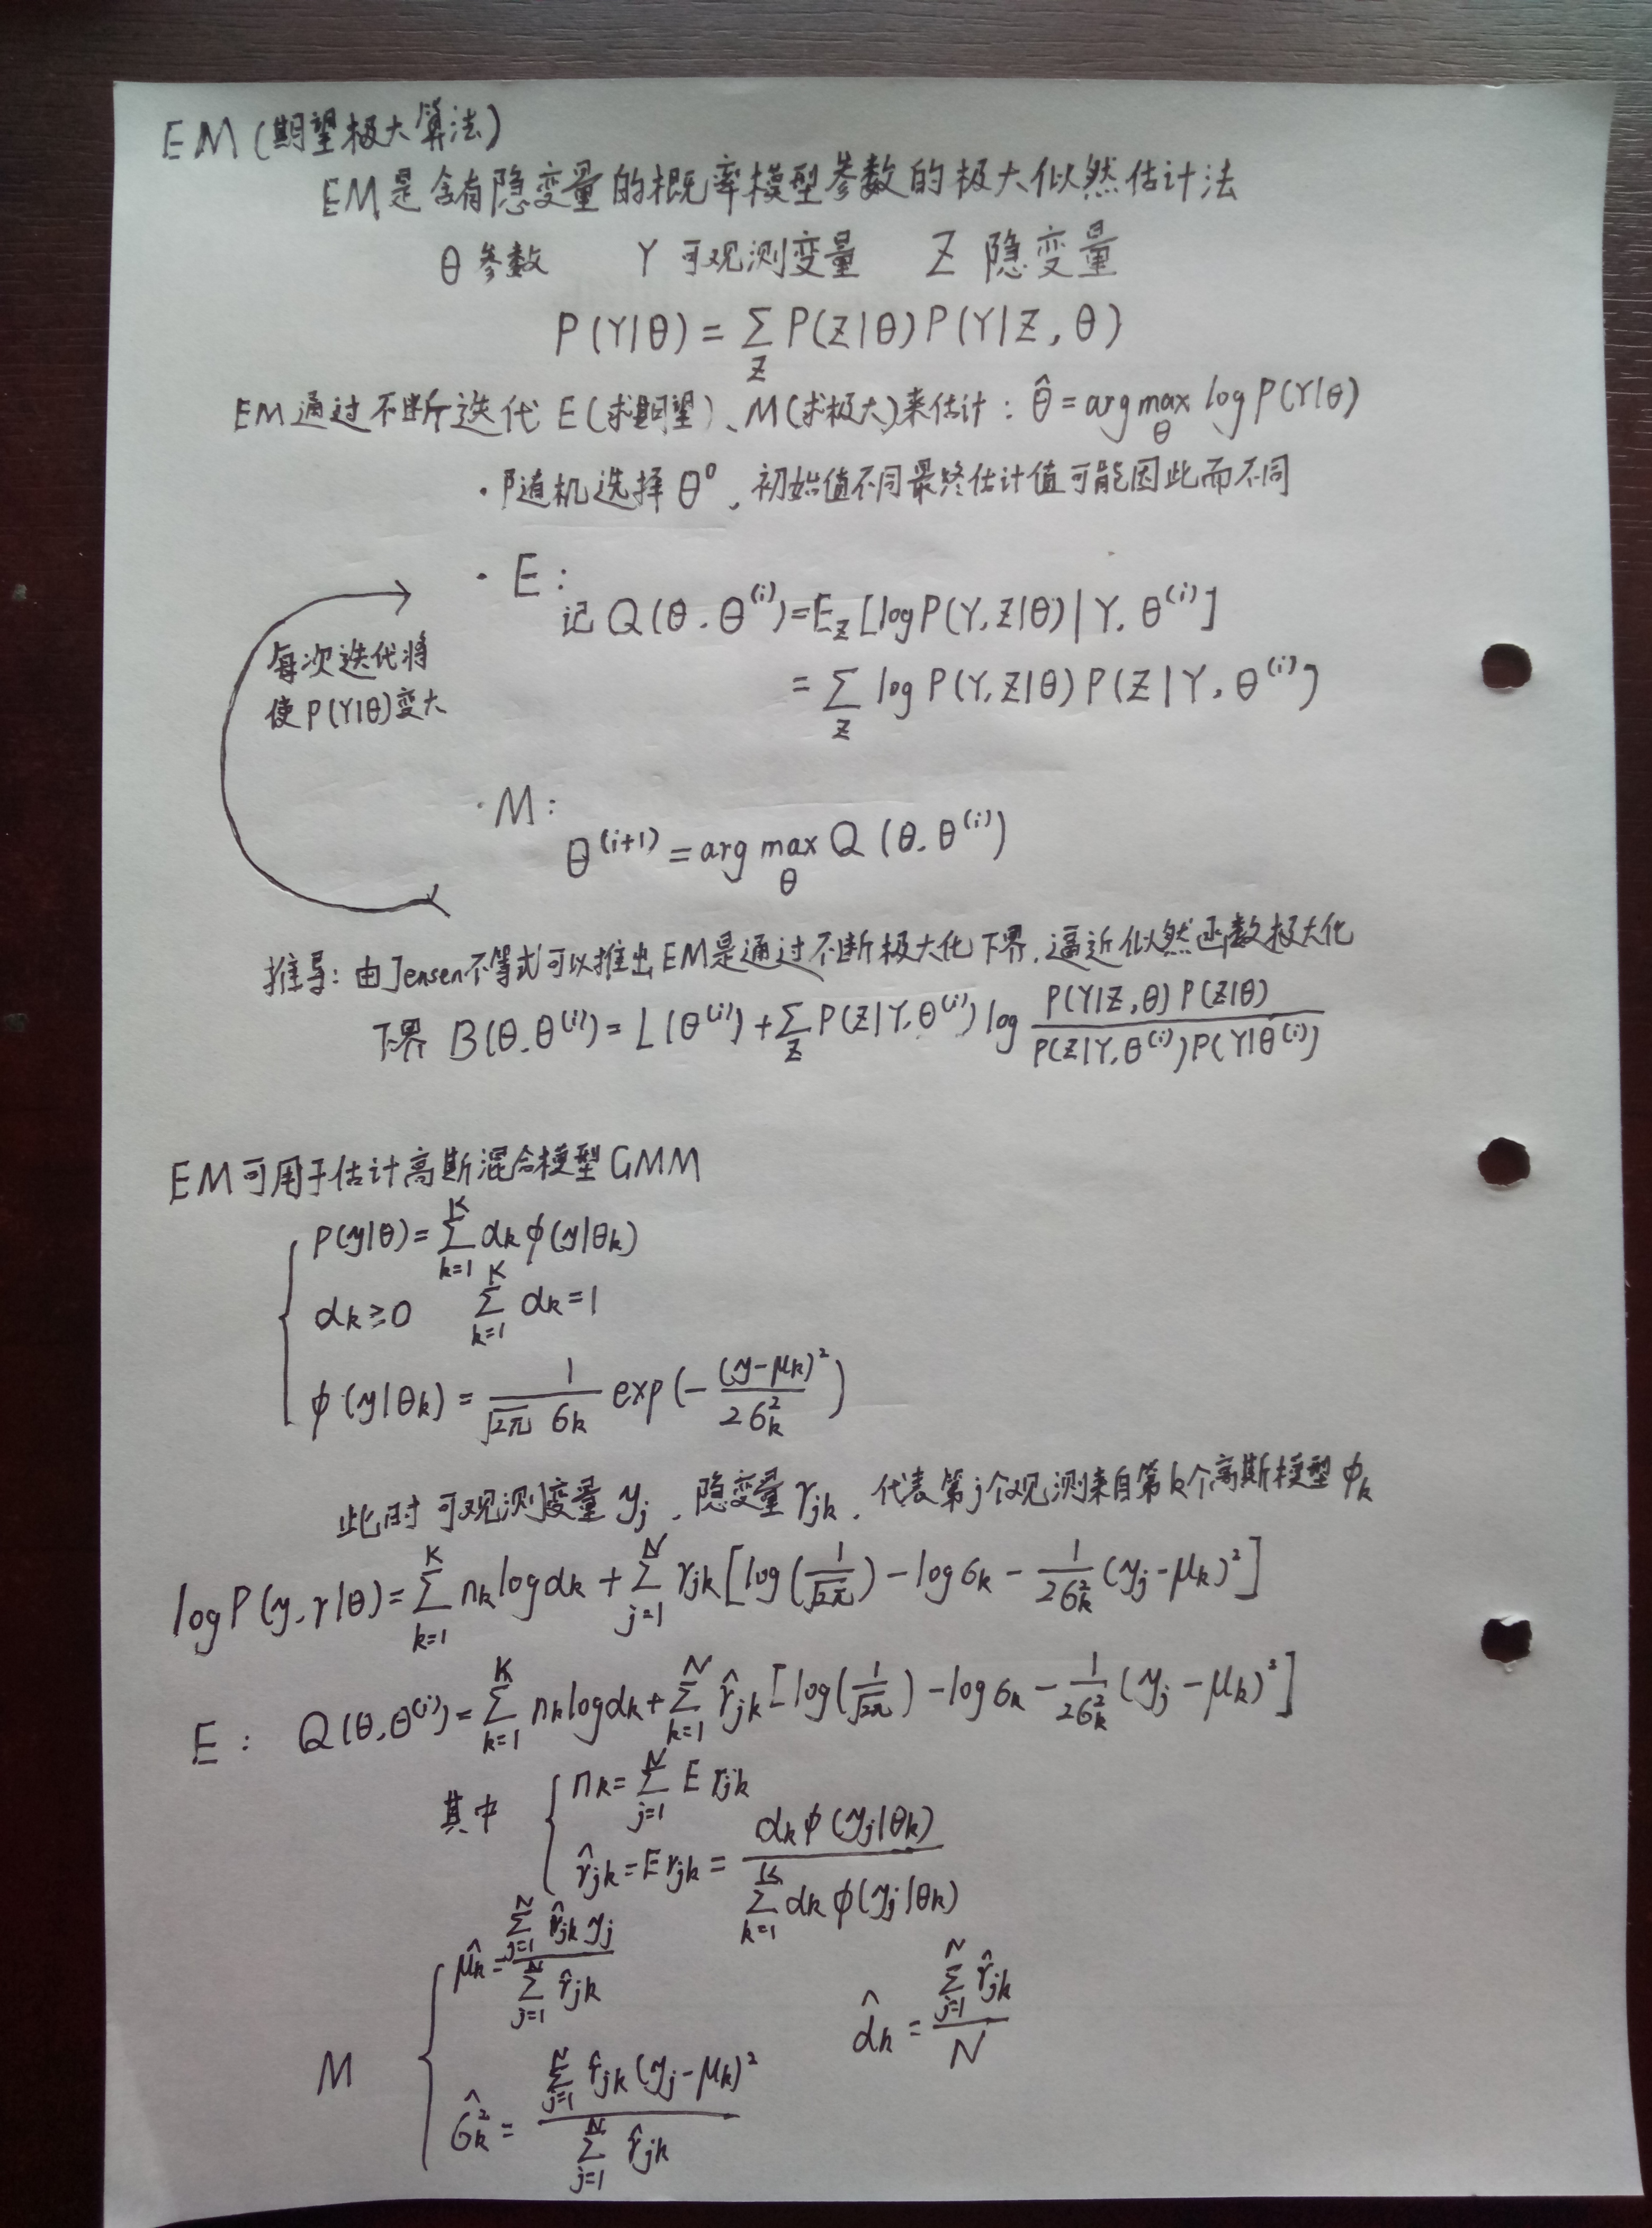 EM(期望极大算法)
EM是含有隐变量的概率模型参数的极大似然估计法
θ 参数 Y 可观测变量 Z 隐变量
P(Y|θ) = ∑_Z P(Z|θ) P(Y|Z, θ)
EM通过不断迭代 E(求期望)、M(求极大)来估计: θ̂ = arg max_θ log P(Y|θ)
·随机选择 θ⁰, 初始值不同最终估计值可能因此而不同
· E:
记 Q(θ, θ^(i)) = E_Z [log P(Y, Z|θ) | Y, θ^(i)]
= ∑_Z log P(Y, Z|θ) P(Z|Y, θ^(i))
每次迭代将
使P(Y|θ)变大
· M:
θ^(i+1) = arg max_θ Q (θ, θ^(i))
推导: 由Jensen不等式可以推出EM是通过不断极大化下界, 逼近似然函数极大化
下界 B(θ, θ^(i)) = L(θ^(i)) + ∑_Z P(Z|Y, θ^(i)) log \frac{P(Y|Z, θ) P(Z|θ)}{P(Z|Y, θ^(i)) P(Y|θ^(i))}
EM可用于估计高斯混合模型GMM
P(y|θ) = ∑_{k=1}^{K} α_k ϕ(y|θ_k)
α_k ≥ 0 ∑_{k=1}^{K} α_k = 1
ϕ(y|θ_k) = \frac{1}{\sqrt{2π} σ_k} exp(-\frac{(y-μ_k)^2}{2σ_k^2})
此时 可观测变量 y_j, 隐变量 γ_jk, 代表第j个观测来自第k个高斯模型 ϕ_k
log P(y, γ|θ) = ∑_{k=1}^{K} n_k log α_k + ∑_{j=1}^{N} γ_jk [log(\frac{1}{\sqrt{2π}}) - log σ_k - \frac{1}{2σ_k^2} (y_j - μ_k)^2]
E: Q(θ, θ^(i)) = ∑_{k=1}^{K} n_k log α_k + ∑_{k=1}^{N} γ̂_jk [log(\frac{1}{\sqrt{2π}}) - log σ_k - \frac{1}{2σ_k^2} (y_j - μ_k)^2]
其中 n_k = ∑_{j=1}^{N} E γ_jk
γ̂_jk = E γ_jk = \frac{α_k ϕ(y_j|θ_k)}{∑_{k=1}^{K} α_k ϕ(y_j|θ_k)}
M μ̂_k = \frac{∑_{j=1}^{N} γ̂_jk y_j}{∑_{j=1}^{N} γ̂_jk}
α̂_k = \frac{∑_{j=1}^{N} γ̂_jk}{N}
σ̂_k^2 = \frac{∑_{j=1}^{N} γ̂_jk (y_j - μ_k)^2}{∑_{j=1}^{N} γ̂_jk}